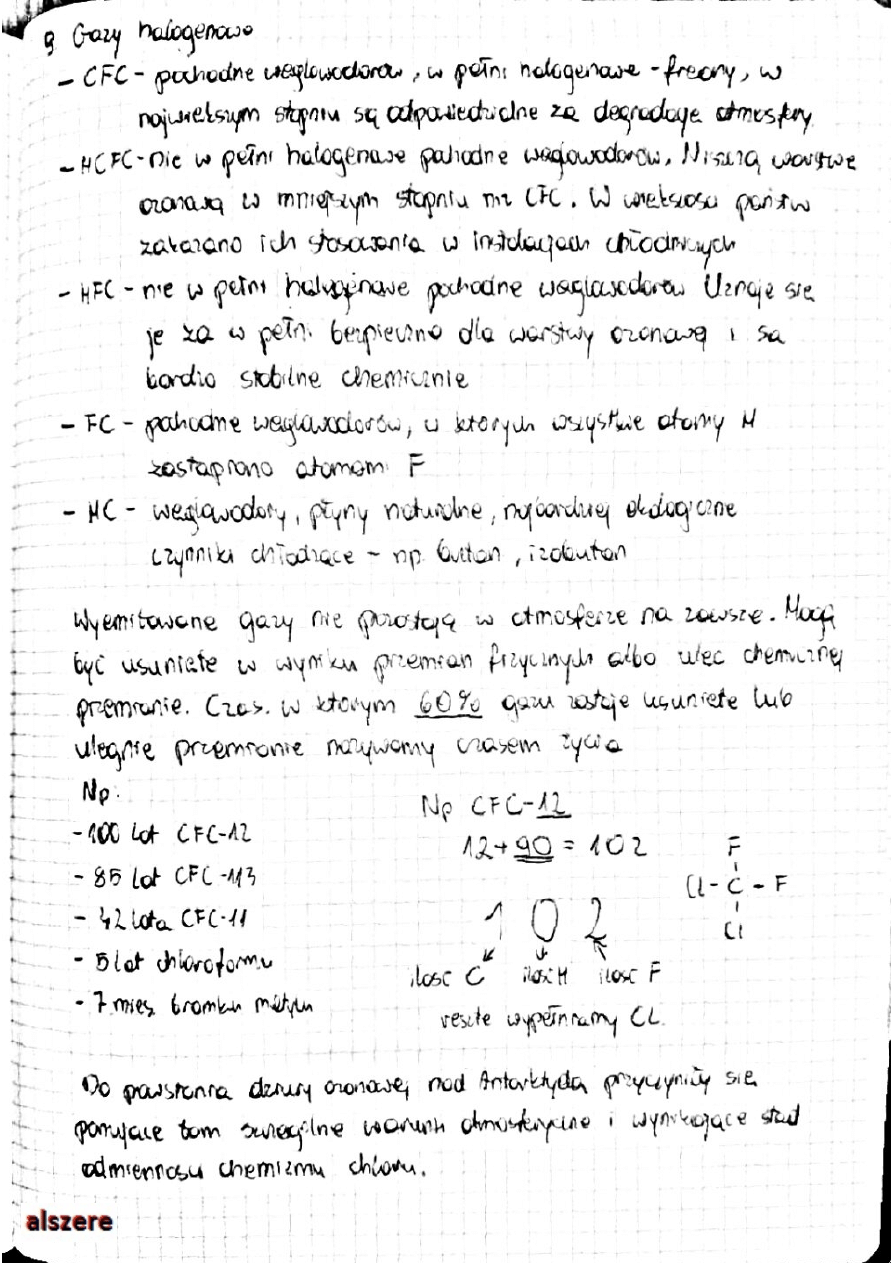 9. Gazy halogenowe
- CFC - pochodne węglowodorów, w pełni halogenowe - freony, w
największym stopniu są odpowiedzialne za degradację atmosfery
- HCFC - nie w pełni halogenowe pochodne węglowodorów. Niszczą warstwę
ozonową w mniejszym stopniu niż CFC. W większości państw
zakazano ich stosowania w instalacjach chłodniczych
- HFC - nie w pełni halogenowe pochodne węglowodorów Uznaje się
je za w pełni bezpieczne dla warstwy ozonowej i są
bardzo stabilne chemicznie
- FC - pochodne węglowodorów, w których wszystkie atomy H
zastąpiono atomami F
- HC - węglowodory, płyny naturalne, najbardziej ekologiczne
czynniki chłodzące - np. butan, izobutan
Wyemitowane gazy nie pozostają w atmosferze na zawsze. Mogą
być usunięte w wyniku przemian fizycznych albo ulec chemicznej
przemianie. Czas. w którym 60% gazu zostaje usunięte lub
ulegnie przemianie nazywamy czasem życia
Np.
- 100 lat CFC-12
- 85 lat CFC-113
- 42 lata CFC-11
- 5 lat chloroformu
- 7 mies bromku metylu
Np CFC-12
12+90 = 102
1 0 2
ilość C ilość H ilość F
resztę wypełniamy CL.
F
Cl - C - F
Cl
Do powstania dziury ozonowej nad Antarktydą przyczyniły się
panujące tam szczególne warunki atmosferyczne i wynikające stąd
odmienności chemizmu chloru.
alszere